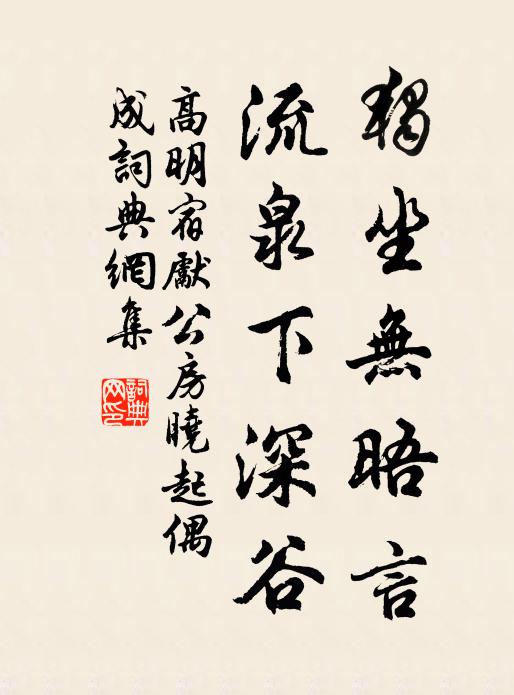 獨坐無晤言
流泉下深谷
高明宿獻公房曉起偶
成詞典網集
詞典
网印